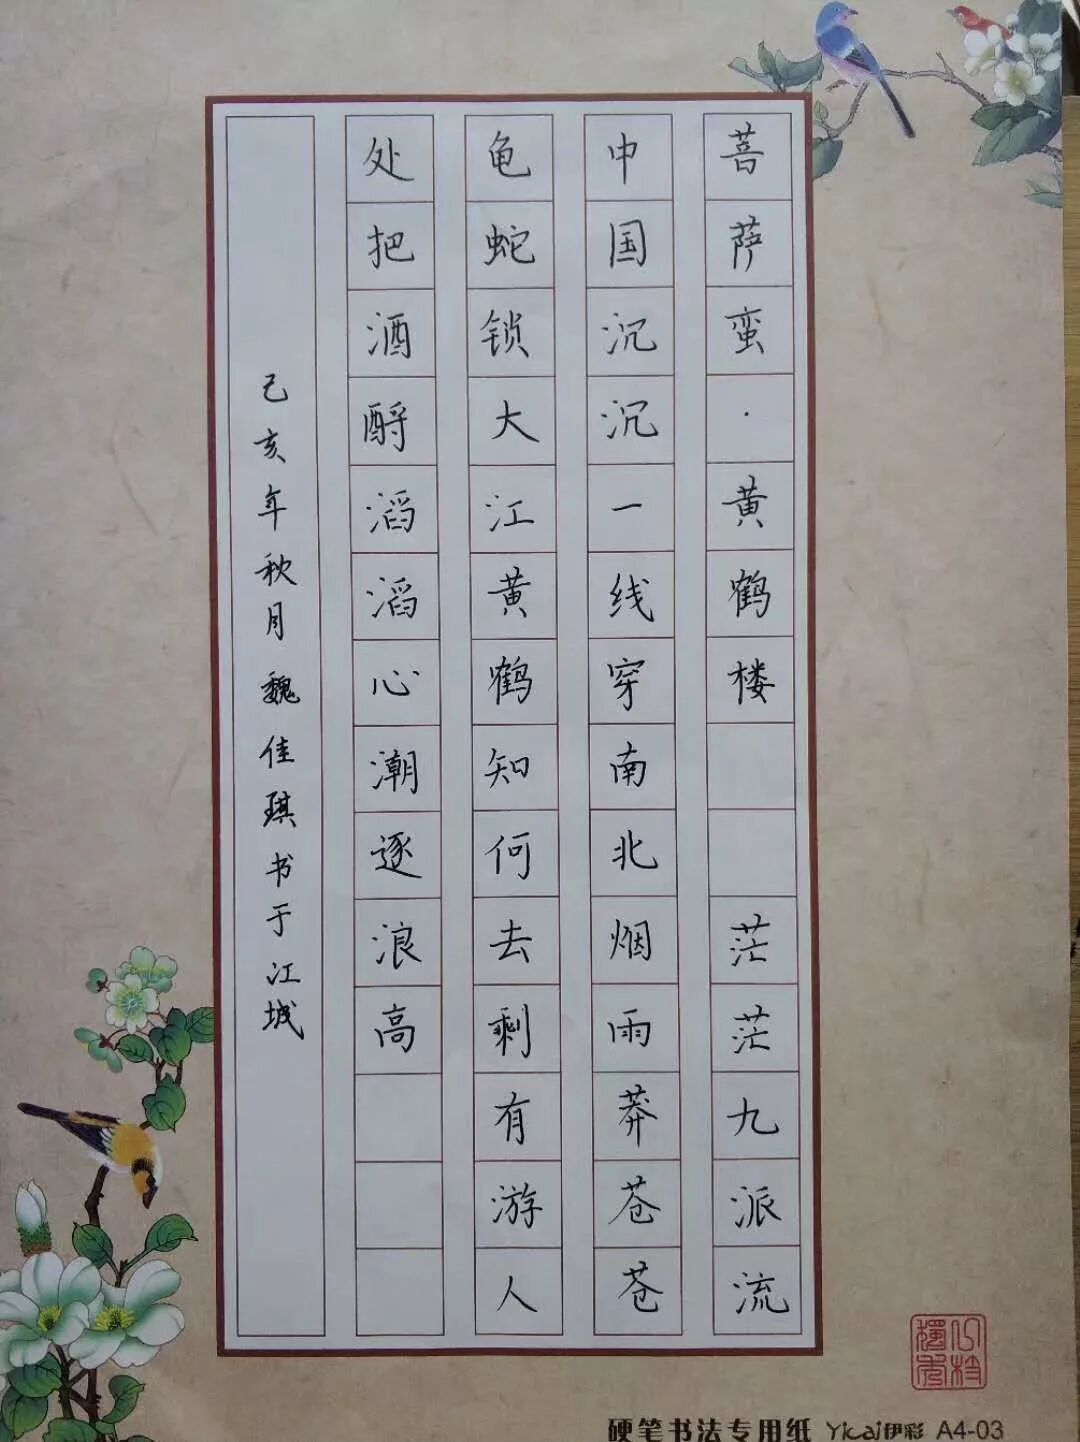 菩萨蛮·黄鹤楼 茫茫九派流
中国沉沉一线穿南北烟雨莽苍苍
龟蛇锁大江黄鹤知何去剩有游人
处把酒酹滔滔心潮逐浪高
己亥年秋月魏佳琪书于江城
硬笔书法专用纸 Yicai伊彩 A4-03